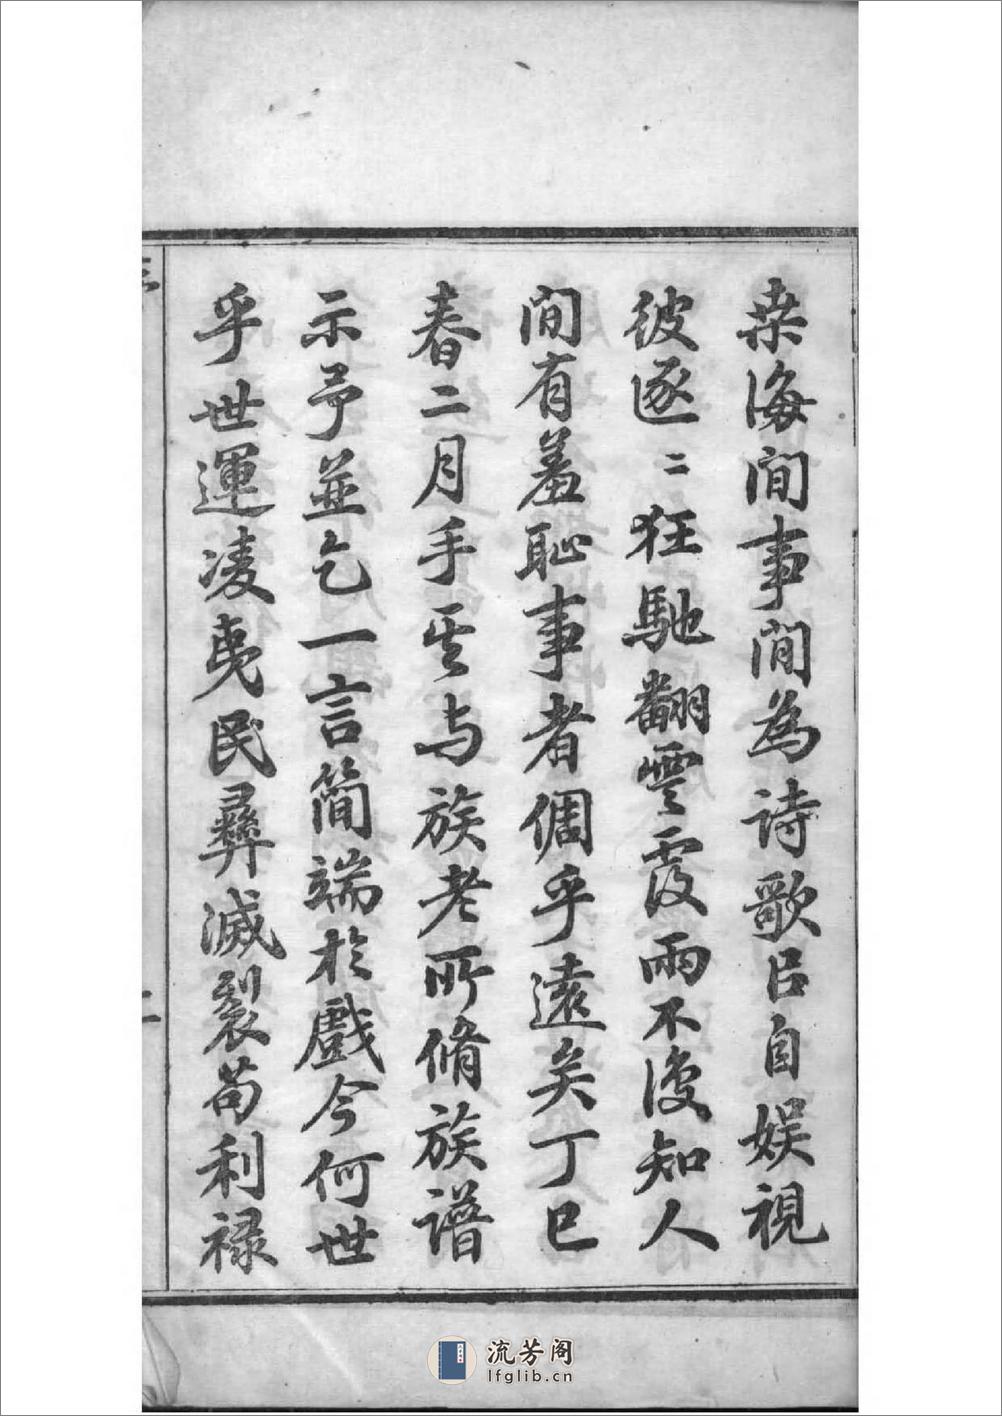 桒海間事間為詩歌㠯自娱視
彼逐〻狂馳翻雲霞雨不復知人
間有羞恥事者倜乎遠矣丁巳
春二月手其与族老所脩族譜
示予並乞一言簡端於戲今何世
乎世運凌夷民彝滅裂苟利祿
流芳阁
lfglib.cn